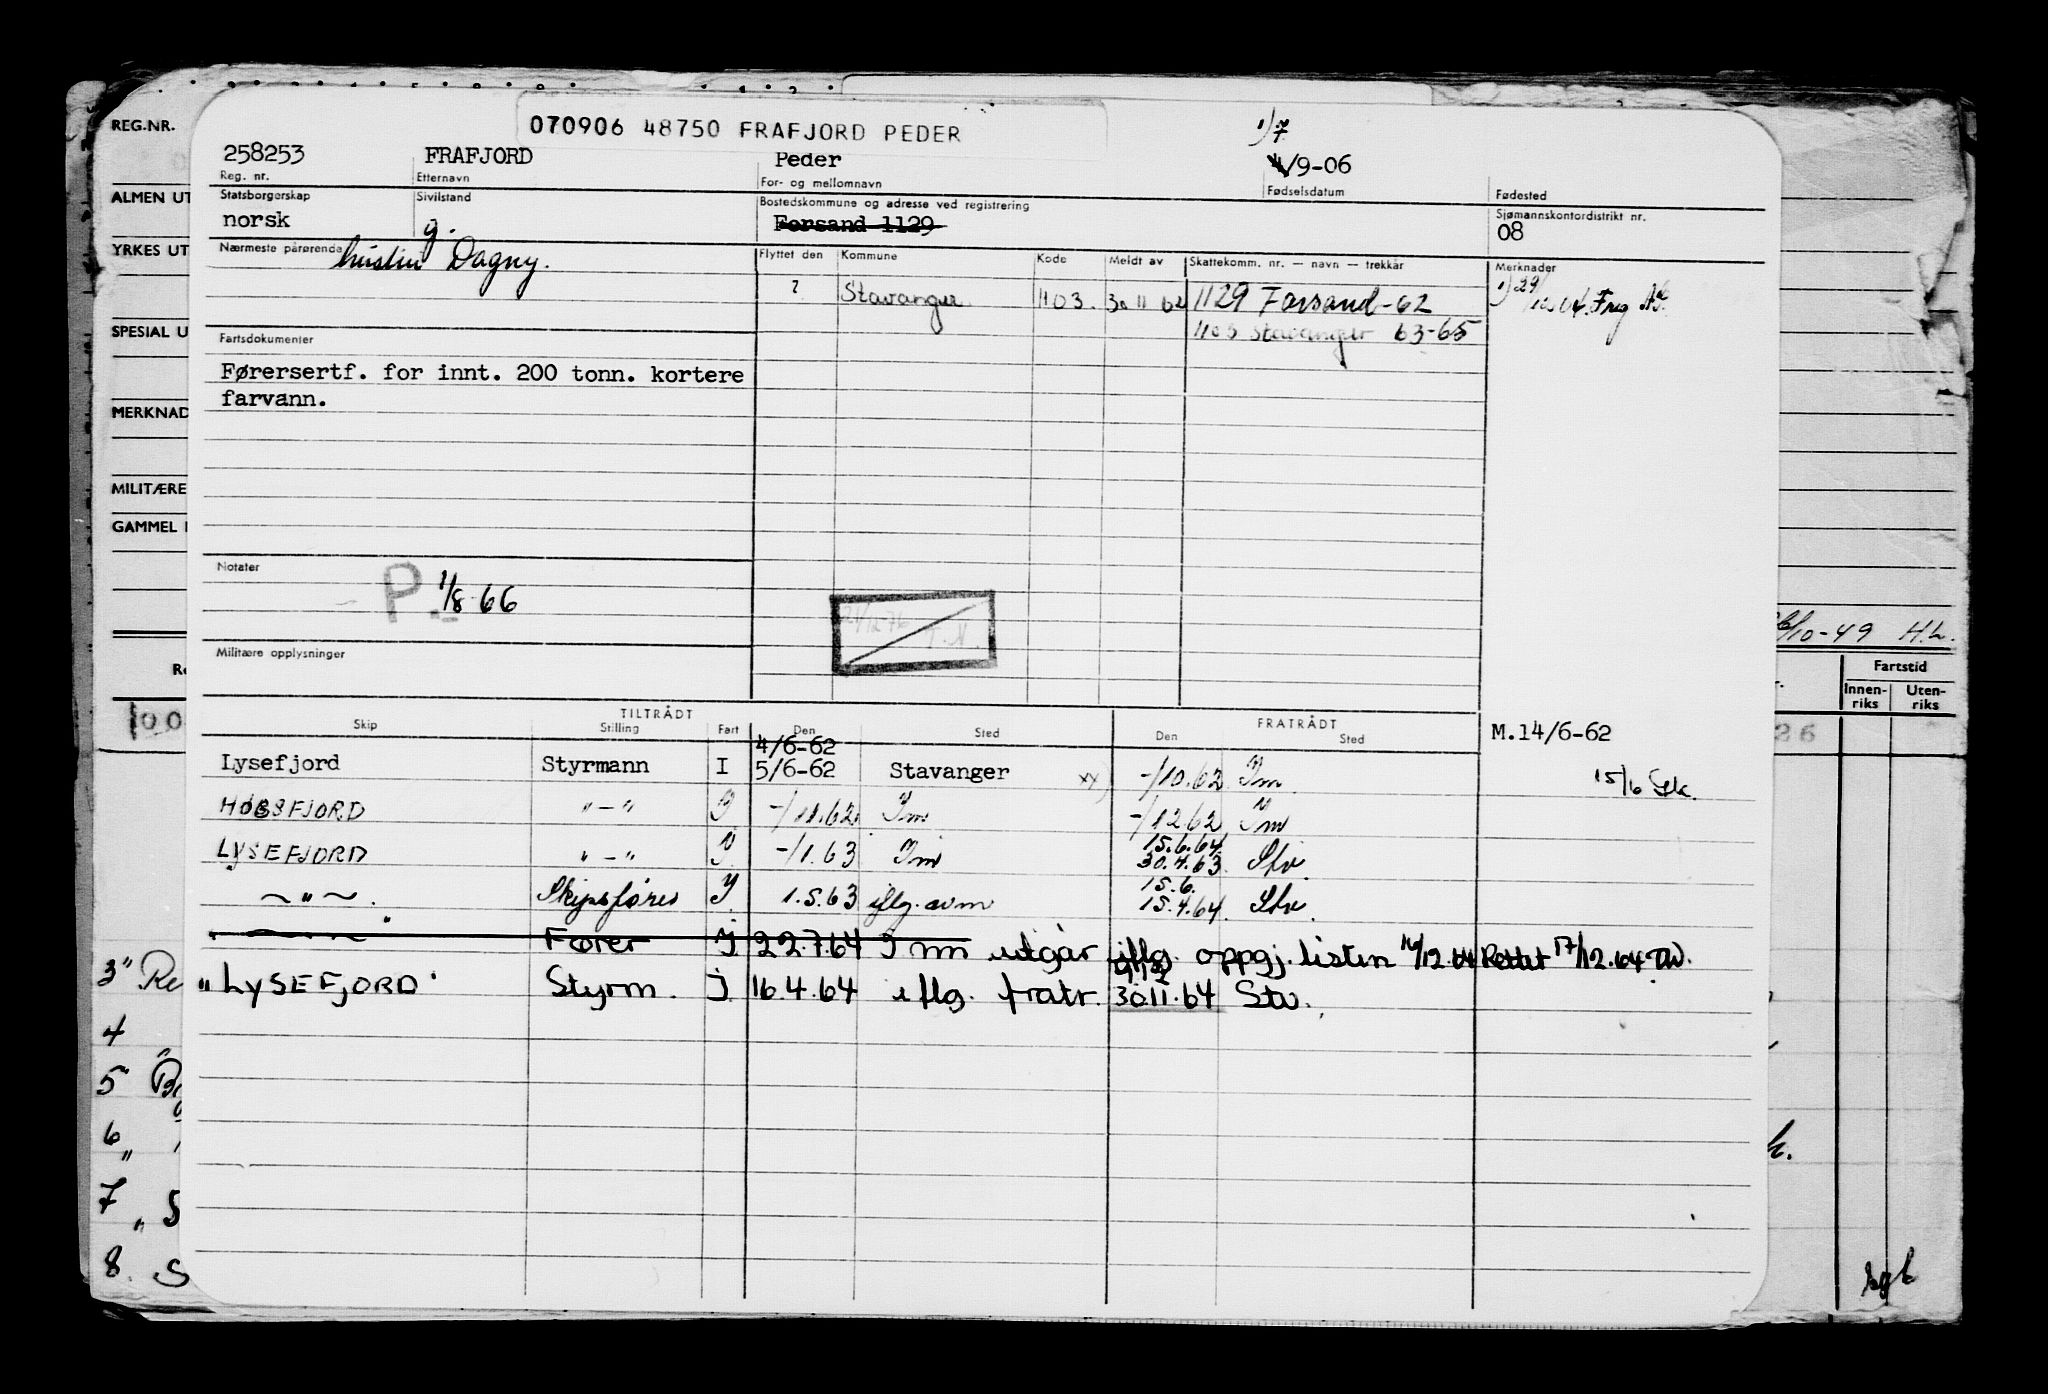 REG.NR.
070906 48750 FRAFJORD PEDER
1) 7
258253 FRAFJORD Peder 4/9-06
Reg. nr. Etternavn For- og mellomnavn Fødselsdatum Fødested
ALMEN UT
Statsborgerskap Sivilstand Bostedskommune og adresse ved registrering Sjømannskontordistrikt nr.
norsk g. Forsand 1129 08
YRKES UT
Nærmeste pårørende hustru Dagny.
Flyttet den Kommune Kode Meldt av Skattekomm. nr. — navn — trekkår Merknader
? Stavanger 1103. 30 11 62 1129 Forsand-62 1) 29/10.64. Frig
1103 Stavanger 63-65
SPESIAL U
Fartsdokumenter
Førersertf. for innt. 200 tonn. kortere
farvann.
MERKNAD
MILITÆRE
GAMMEL
Notater
P. 1/8 66
21/12-76
/10-49 H.L.
Militære opplysninger
Fartstid
Innen-riks Uten-riks
100
26
TILTRÅDT FRATRÅDT
Skip Stilling Fart Den Sted Den Sted
M.14/6-62
4/6-62
Lysefjord Styrmann I 5/6-62 Stavanger xx) -/10.62 Im
15/6
HØGSFJORD "-" I -/11.62 Im -/12 62 Im
15.6.64
LYSEFJORD "-" I -/1.63 Im 30.4.63 Stv.
15.6.
~"~. Skipsfører I 1.5.63 iflg. avm 15.4.64 Stv.
" Fører I 22.7.64 Imm utgår iflg. oppgj. listen 16/12.64 Rettet 17/12.64
"LYSEFJORD" Styrm. I 16.4.64 iflg. fratr. 30.11.64 Stv.
3" Re
4 "
5
6 "
7 "
8. S
h.